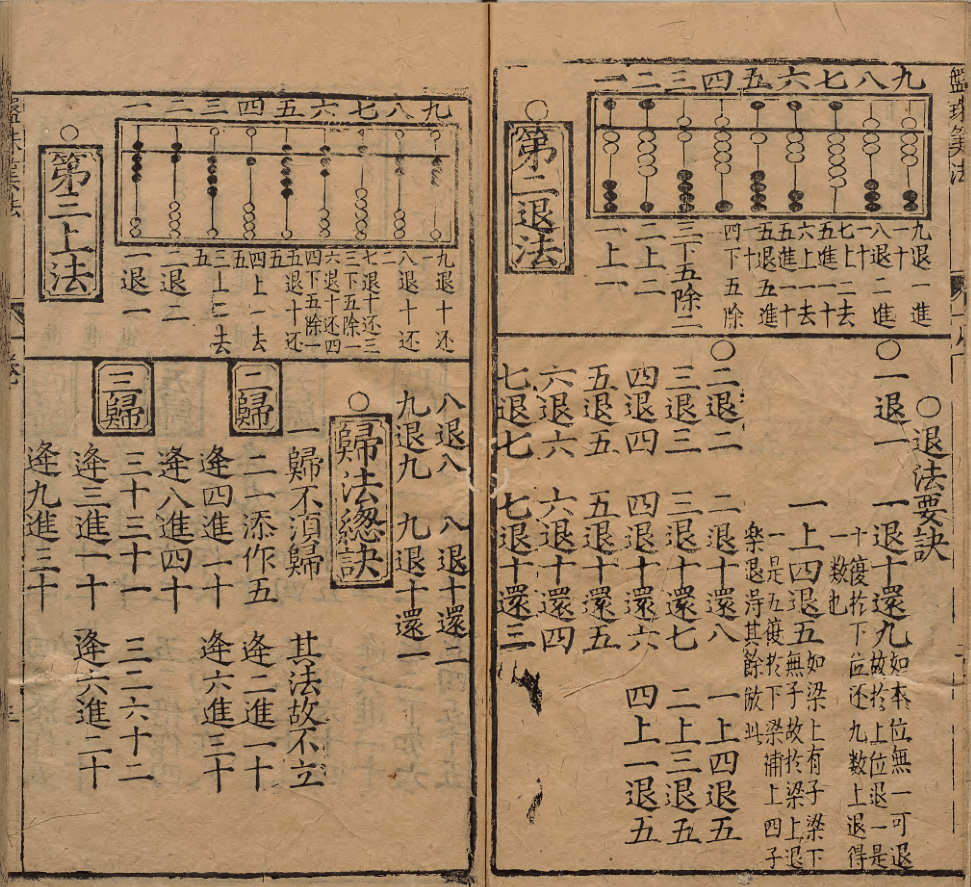 盤珠算法
九八七六五四三二一
九退一進一十
八退二進一十
七上二去五進一十
六上一去五進一十
五退五進一十
四下五除一
三下五除二
二上二
一上一
○第二退法
○退法要訣
○一退一 一退十還九如本位無一可退故扵上位退一是十復扵下位还九数上退得一数也
一上四退五如梁上有子梁下無子故扵梁上退一是五復扵下梁補上四子
樂退淂其餘倣此
○二退二 二退十還八 一上四退五
三退三 三退十還七 二上三退五
四退四 四退十還六 四上一退五
五退五 五退十還五
六退六 六退十還四
七退七 七退十還三
九八七六五四三二一
九退十还一
八退十还二
七退十还三
三下五除一
六退十还四
四下五除一
五退十还五
四上一去五
三上二去五
二退二
一退一
○第三上法
八退八 八退十還二
九退九 九退十還一
○歸法緫訣
一歸不湏歸 其法故不立
二歸
二一添作五 逄二進一十
逄四進二十 逄六進三十
逄八進四十
三歸
三十三十一 三二六十二
逄三進一十 逄六進二十
逄九進三十
盤珠算法